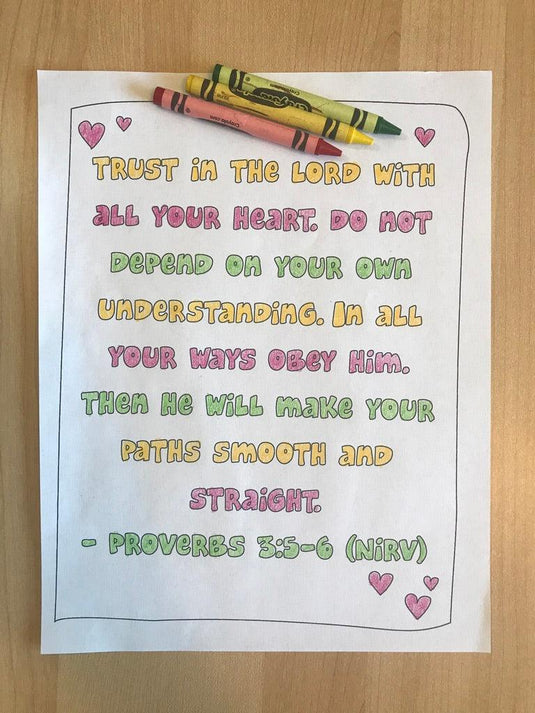 Crayola
Crayola.com
TRUST in THE LORD WiTH
all YOUR HeaRT. DO nOT
DePenD On YOUR OWn
UnDeRSTanDinG. In all
YOUR WaYS OBeY Him.
THen He Will make YOUR
PaTHS SmOOTH anD
STRaiGHT.
- PROVeRBS 3:5-6 (NiRV)